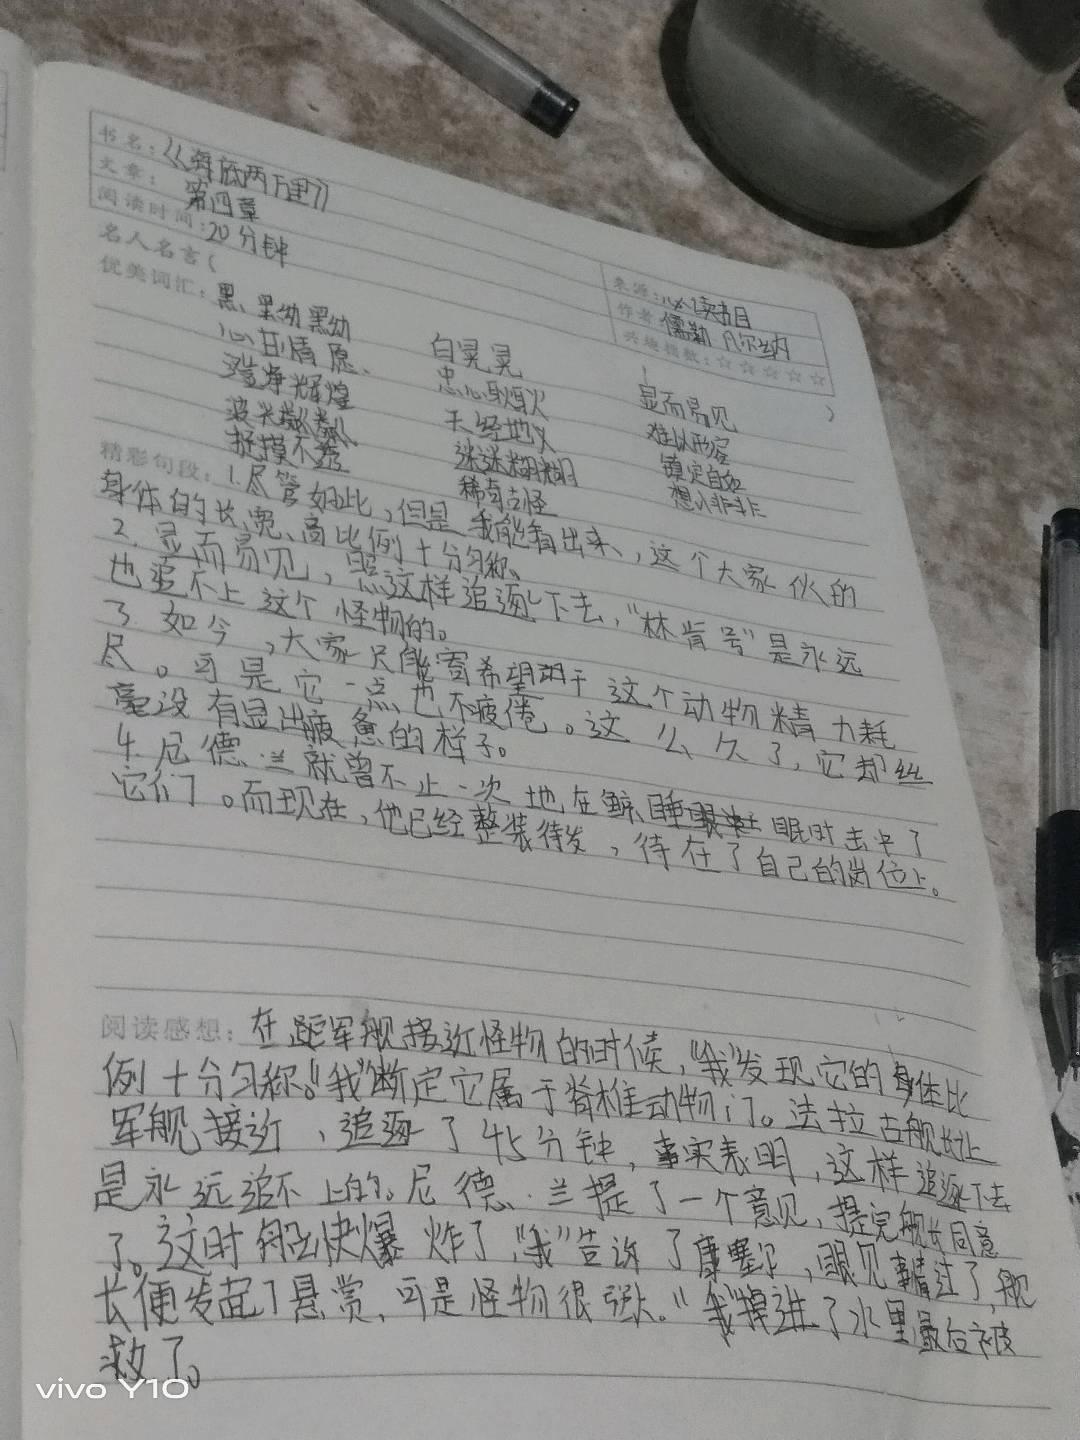 书名：《海底两万里》
文章：第四章
阅读时间：20分钟
来源：必读书目
作者：儒勒 凡尔纳
兴趣指数：☆☆☆☆☆
名人名言（ ）
优美词汇：黑、黑幼黑幼
心甘情愿、 白晃晃 显而易见
辉煌 忠心耿耿 难以形容
波光粼粼 天经地义 镇定自如
捉摸不透 迷迷糊糊 想入非非
稀奇古怪
精彩句段：1.尽管如此，但是我能看出来，这个大家伙的
身体的长、宽、高比例十分匀称。
2.显而易见，照这样追逐下去，“林肯号”是永远
也追不上这个怪物的。
3.如今，大家只能寄希望于这个动物精力耗
尽。可是它一点也不疲倦。这么久了，它却丝
毫没有显出疲惫的样子。
4.尼德·兰就曾不止一次地在鲸睡眠时击中了
它们。而现在，他已经整装待发，待在了自己的岗位上。
阅读感想：在距军舰接近怪物的时候，“我”发现它的身体比
例十分匀称。“我”断定它属于脊椎动物门。法拉古舰长让
军舰接近，追逐了45分钟，事实表明，这样追逐下去
是永远追不上的。尼德·兰提了一个意见，提完舰长同意
了。这时船快爆炸了，“我”告诉了康塞尔，眼见事情过了，舰
长便发起了悬赏，可是怪物很强大。“我”掉进了水里最后被
救了。
vivo Y10